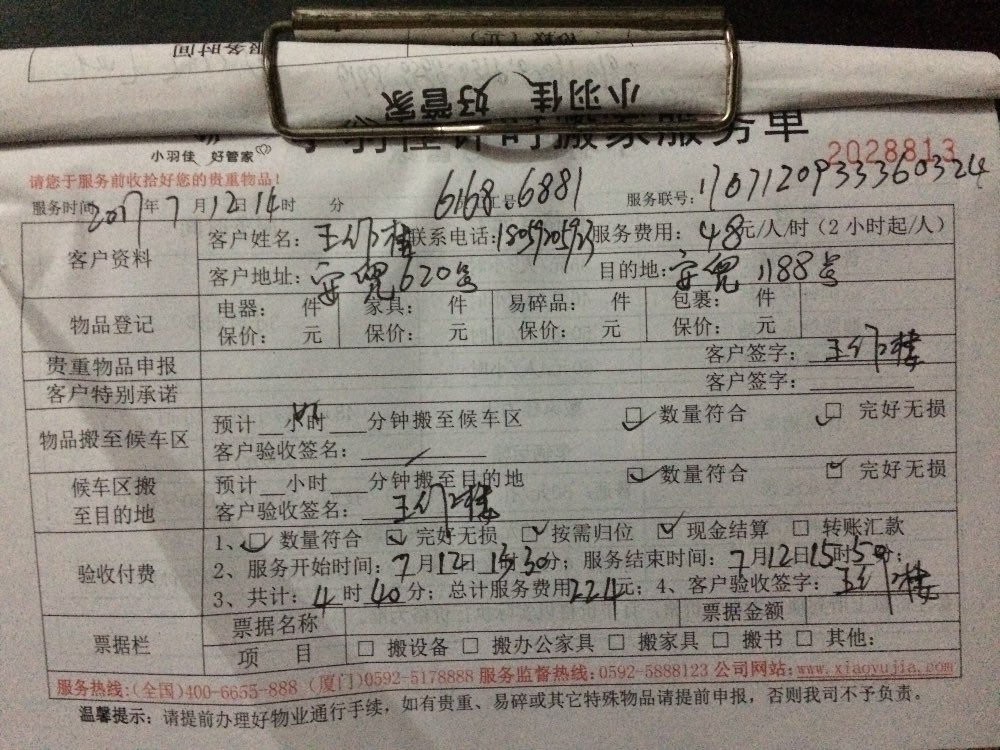 小羽佳 好管家
小羽佳计时搬家服务单
小羽佳 好管家
2028813
请您于服务前收拾好您的贵重物品!
服务时间 2017年7月12日14时 分 6168.6881 工号: 服务联号: 170712093333603224
客户资料 客户姓名: 联系电话: 服务费用: 48元/人/时(2小时起/人)
客户地址: 安兜620号 目的地: 安兜1188号
物品登记 电器: 件 家具: 件 易碎品: 件 包裹: 件
保价: 元 保价: 元 保价: 元 保价: 元
贵重物品申报 客户签字:
客户特别承诺 客户签字:
物品搬至候车区 预计 小时 分钟搬至候车区 数量符合 完好无损
客户验收签名:
候车区搬至目的地 预计 小时 分钟搬至目的地 数量符合 完好无损
客户验收签名:
验收付费 1、 数量符合 完好无损 按需归位 现金结算 转账汇款
2、服务开始时间: 7月12日13时30分; 服务结束时间: 7月12日15时50分;
3、共计: 4时40分; 总计服务费用224元; 4、客户验收签字:
票据栏 票据名称 票据金额
项 目 搬设备 搬办公家具 搬家具 搬书 其他:
服务热线:(全国)400-6655-888 (厦门)0592-5178888 服务监督热线:0592-5888123 公司网站:www.xiaoyujia.com
温馨提示: 请提前办理好物业通行手续, 如有贵重、易碎或其它特殊物品请提前申报, 否则我司不予负责。